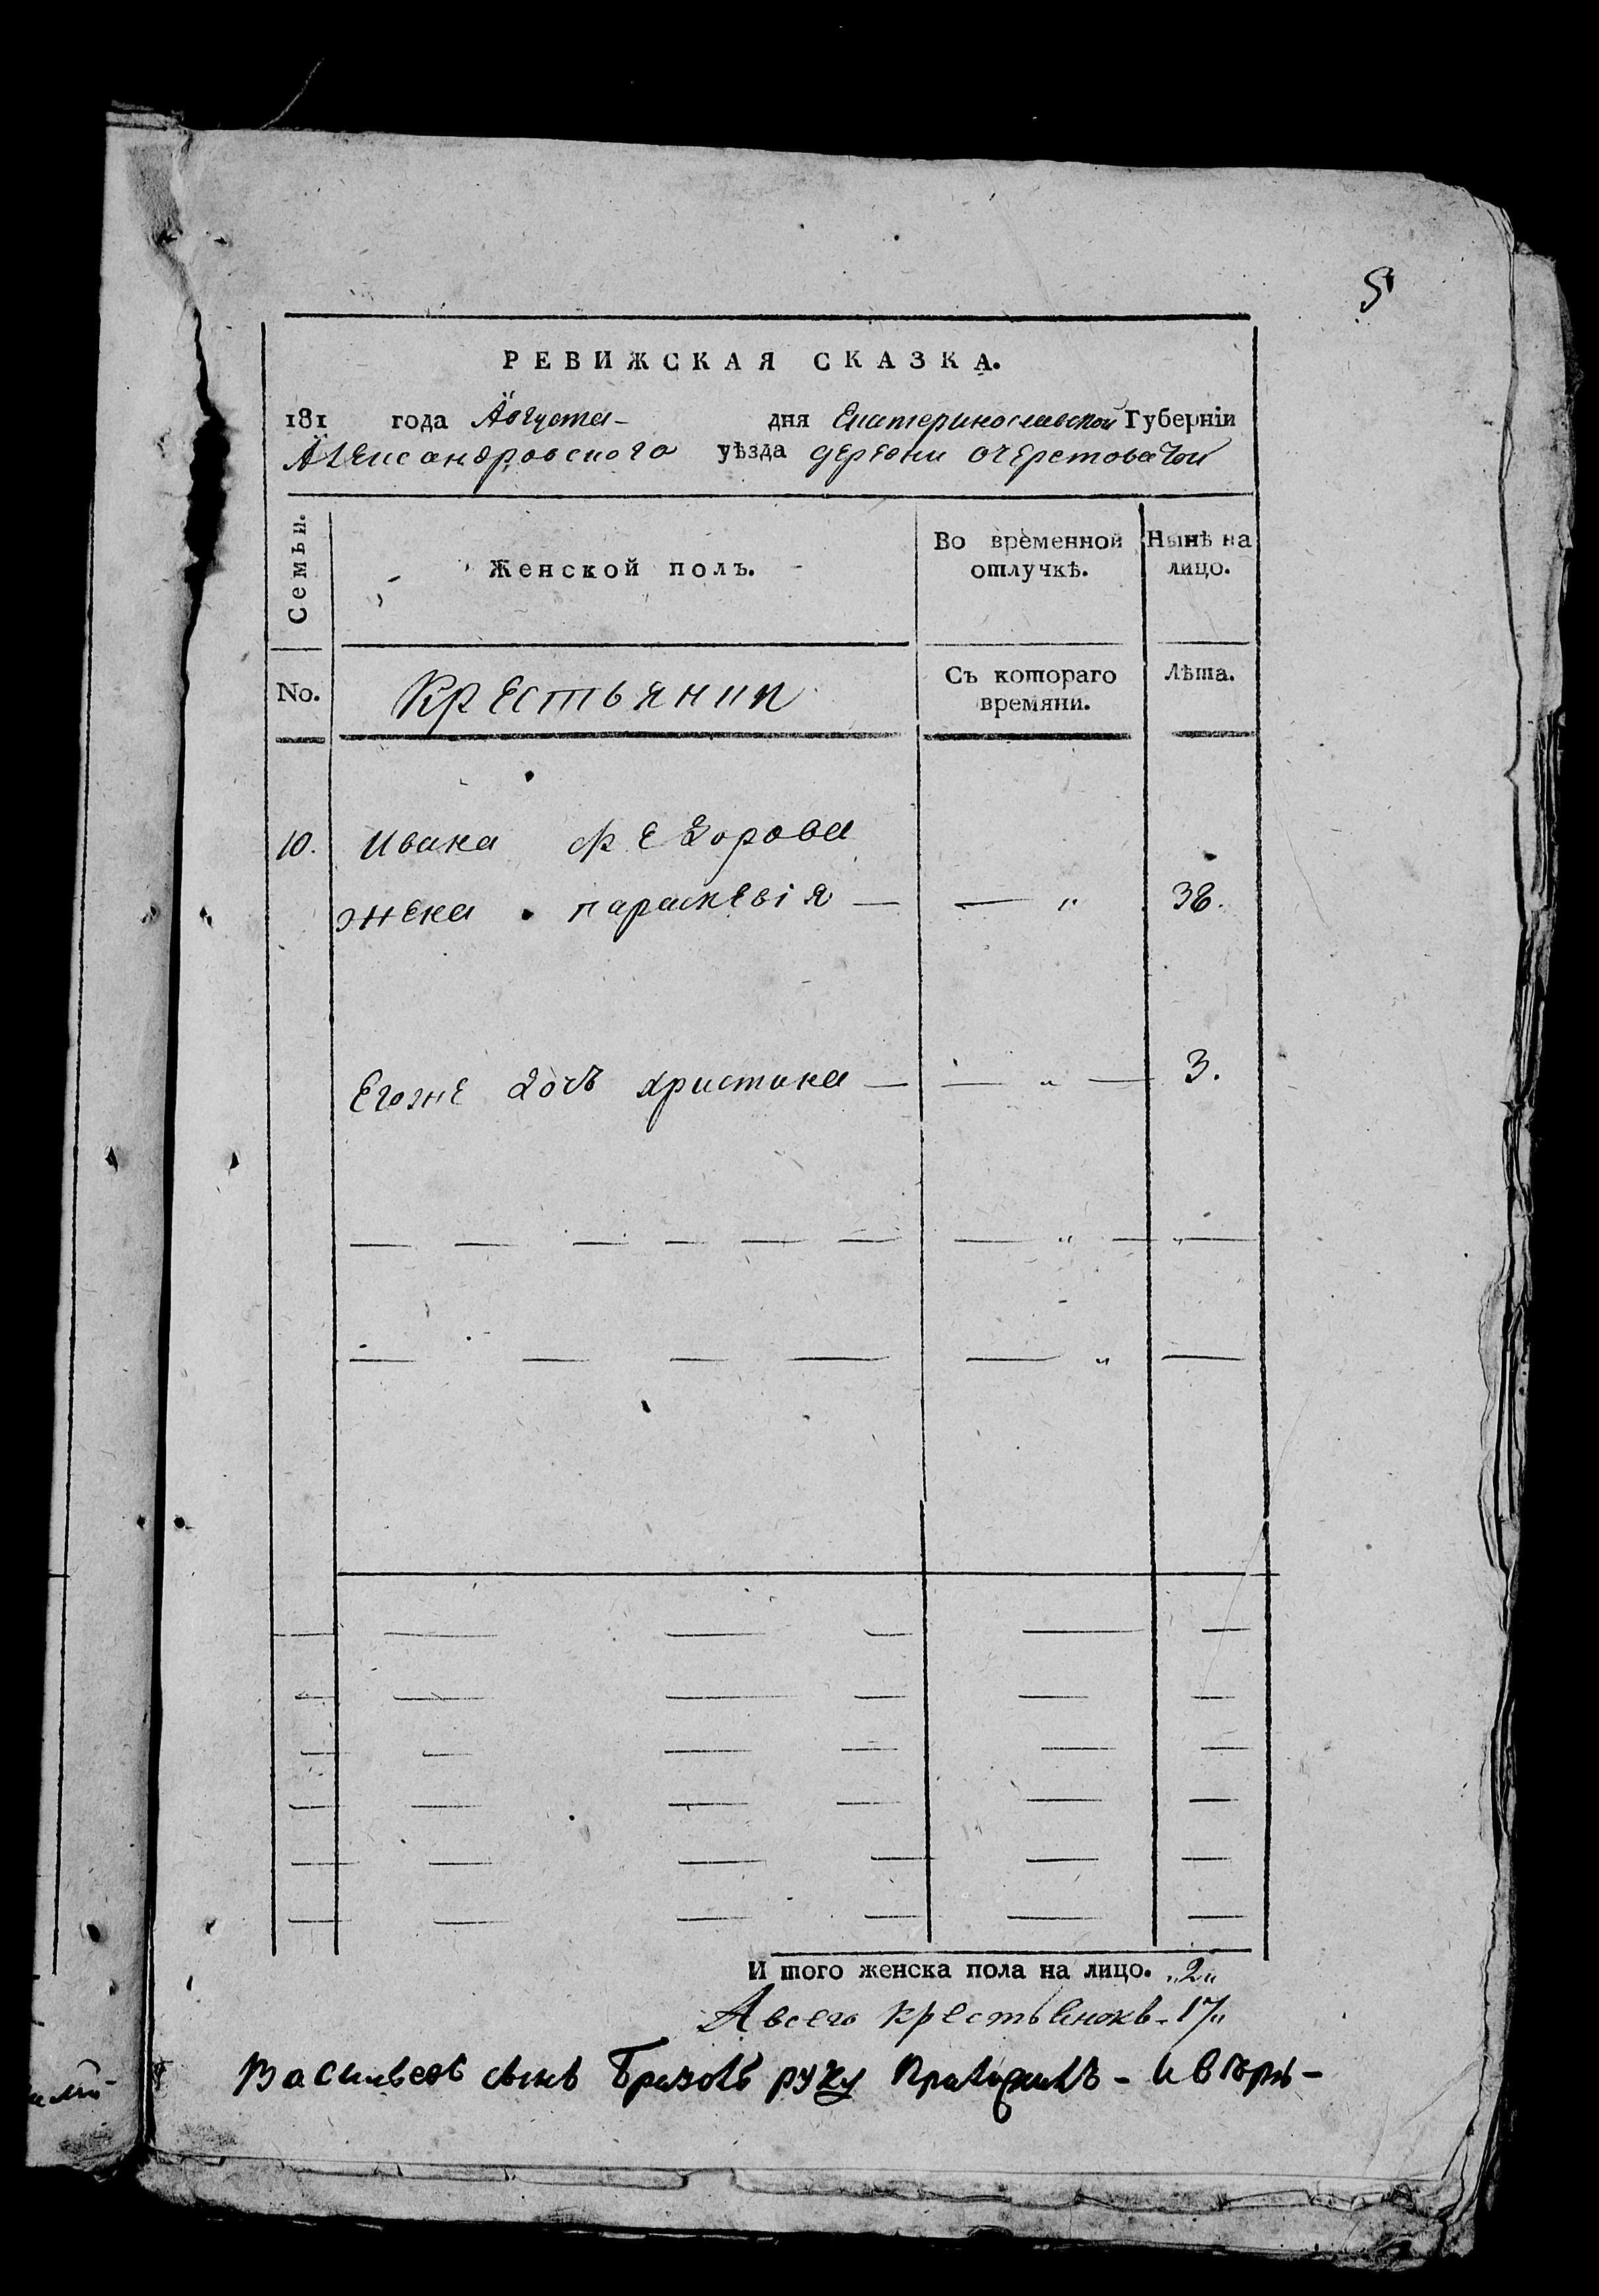 5
РЕВИЖСКАЯ СКАЗКА.
181 года Августа - дня Екатеринославской Губернїи
Александровского уѣзда деревни очеретоватой
Семьи.
Женской полъ.
Во временной отлучкѣ.
Нынѣ на лицо.
No.
Крестьянин
Съ котораго времяни.
Лѣта.
10. Ивана Федорова
жена параскевія — — " 38.
Егоже дочь христина — — " — 3.
И того женска пола на лицо. „2„
А всего крестьянокъ - 17„
Васильевъ сынъ руку приложилъ -